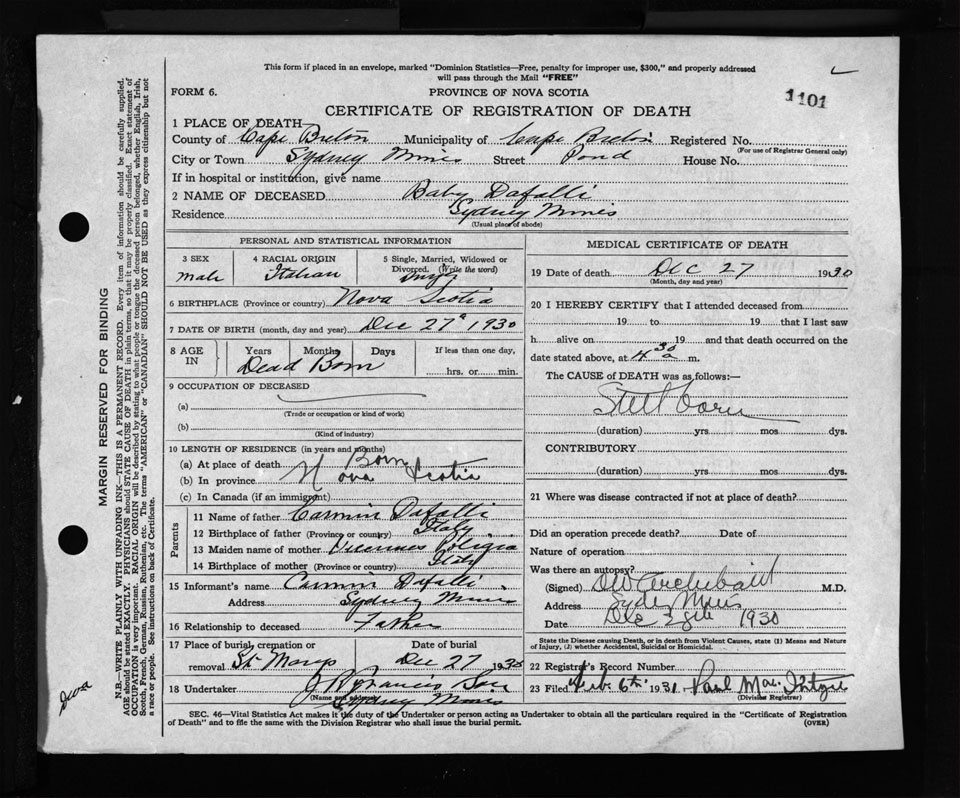 This form if placed in an envelope, marked "Dominion Statistics—Free, penalty for improper use, $300," and properly addressed
will pass through the Mail "FREE"
FORM 6.
PROVINCE OF NOVA SCOTIA
1101
CERTIFICATE OF REGISTRATION OF DEATH
1 PLACE OF DEATH
County of Cape Breton Municipality of Cape Breton Registered No.
(For use of Registrar General only)
City or Town Sydney Mines Street Pond House No.
If in hospital or institution, give name
2 NAME OF DECEASED Baby Dafalli
Residence Sydney Mines
(Usual place of abode)
PERSONAL AND STATISTICAL INFORMATION
3 SEX
male
4 RACIAL ORIGIN
Italian
5 Single, Married, Widowed or
Divorced. (Write the word)
6 BIRTHPLACE (Province or country) Nova Scotia
7 DATE OF BIRTH (month, day and year) Dec 27 1930
8 AGE IN
Years Months Days
Dead Born
If less than one day,
hrs. or min.
9 OCCUPATION OF DECEASED
(a)
(Trade or occupation or kind of work)
(b)
(Kind of industry)
10 LENGTH OF RESIDENCE (in years and months)
(a) At place of death Born
(b) In province Nova Scotia
(c) In Canada (if an immigrant)
Parents
11 Name of father Carmin Dafalli
12 Birthplace of father (Province or country) Italy
13 Maiden name of mother
14 Birthplace of mother (Province or country) Italy
15 Informant's name Carmin Dafalli
Address Sydney Mines
16 Relationship to deceased Father
17 Place of burial, cremation or
removal St. Marys
Date of burial
Dec 27 1930
18 Undertaker
(Name and address)
Sydney Mines
MEDICAL CERTIFICATE OF DEATH
19 Date of death Dec 27 1930
(Month, day and year)
20 I HEREBY CERTIFY that I attended deceased from
19 to 19 that I last saw
h alive on 19 and that death occurred on the
date stated above, at 4 30 a m.
The CAUSE of DEATH was as follows:—
Still born
(duration) yrs mos dys.
CONTRIBUTORY
(duration) yrs mos dys.
21 Where was disease contracted if not at place of death?
Did an operation precede death? Date of
Nature of operation
Was there an autopsy?
(Signed) Archibald M.D.
Address Sydney Mines
Date Dec 1930
State the Disease causing Death, or in death from Violent Causes, state (1) Means and Nature
of Injury, (2) whether Accidental, Suicidal or Homicidal.
22 Registrar's Record Number
23 Filed Feb. 6th 1931 Paul
(Division Registrar)
SEC. 46—Vital Statistics Act makes it the duty of the Undertaker or person acting as Undertaker to obtain all the particulars required in the "Certificate of Registration
of Death" and to file the same with the Division Registrar who shall issue the burial permit.
(OVER)
MARGIN RESERVED FOR BINDING
N.B.—WRITE PLAINLY WITH UNFADING INK—THIS IS A PERMANENT RECORD. Every item of information should be carefully supplied.
AGE should be stated EXACTLY. PHYSICIANS should STATE CAUSE OF DEATH in plain terms, so that it may be properly classified. Exact statement of
OCCUPATION is very important. RACIAL ORIGIN will be described by stating to what people or tongue the deceased person belonged, whether English, Irish,
Scotch, French, German, Russian, Ruthenian, etc. The terms "AMERICAN" or "CANADIAN" SHOULD NOT BE USED as they express citizenship but not
a race or people. See instructions on back of Certificate.